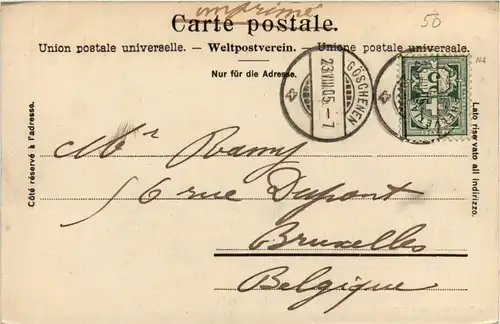 imprimé
50
Carte postale.
Union postale universelle. – Weltpostverein. – Unione postale universale.
Nur für die Adresse.
102
GÖSCHENEN
23.VIII.05.-7
HELVETIA
5
Côté réservé à l'adresse.
Lato riservato all indirizzo.
Mr Ramy
56 rue Dupont
Bruxelles
Belgique